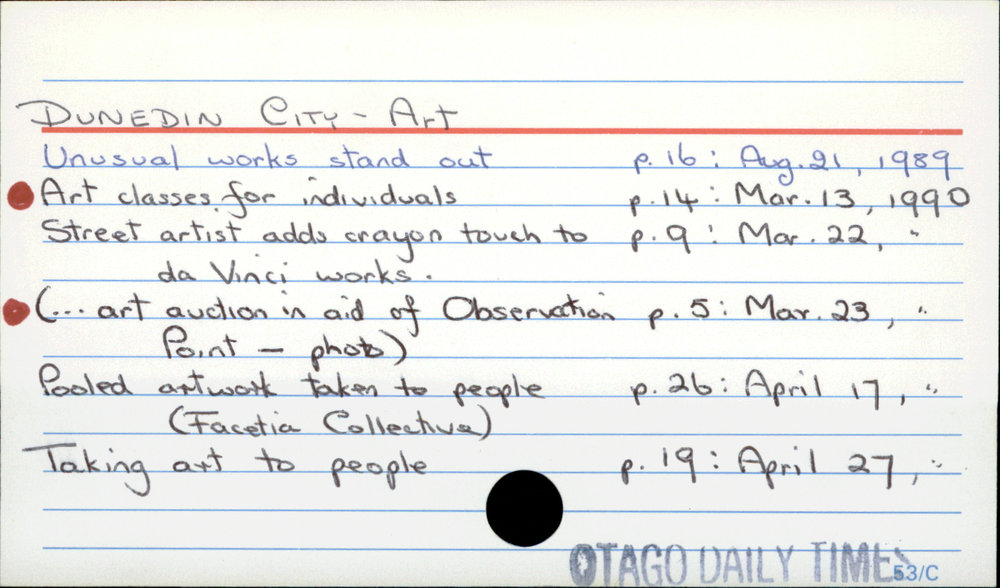 DUNEDIN CITY - Art
Unusual works stand out p. 16 : Aug. 21, 1989
Art classes for individuals p. 14 : Mar. 13, 1990
Street artist adds crayon touch to p. 9 : Mar. 22, "
da Vinci works.
(... art auction in aid of Observation p. 5 : Mar. 23, "
Point - photo)
Pooled artwork taken to people p. 26 : April 17, "
(Facetia Collective)
Taking art to people p. 19 : April 27, "
OTAGO DAILY TIMES
53/C